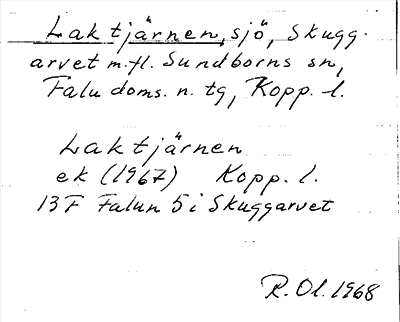 Laktjärnen, sjö, Skugg-
arvet m.fl. Sundborns sn,
Falu doms. n. tg, Kopp. l.
Laktjärnen
ek (1967) Kopp. l.
13F Falun 5 i Skuggarvet
R. Ol. 1968